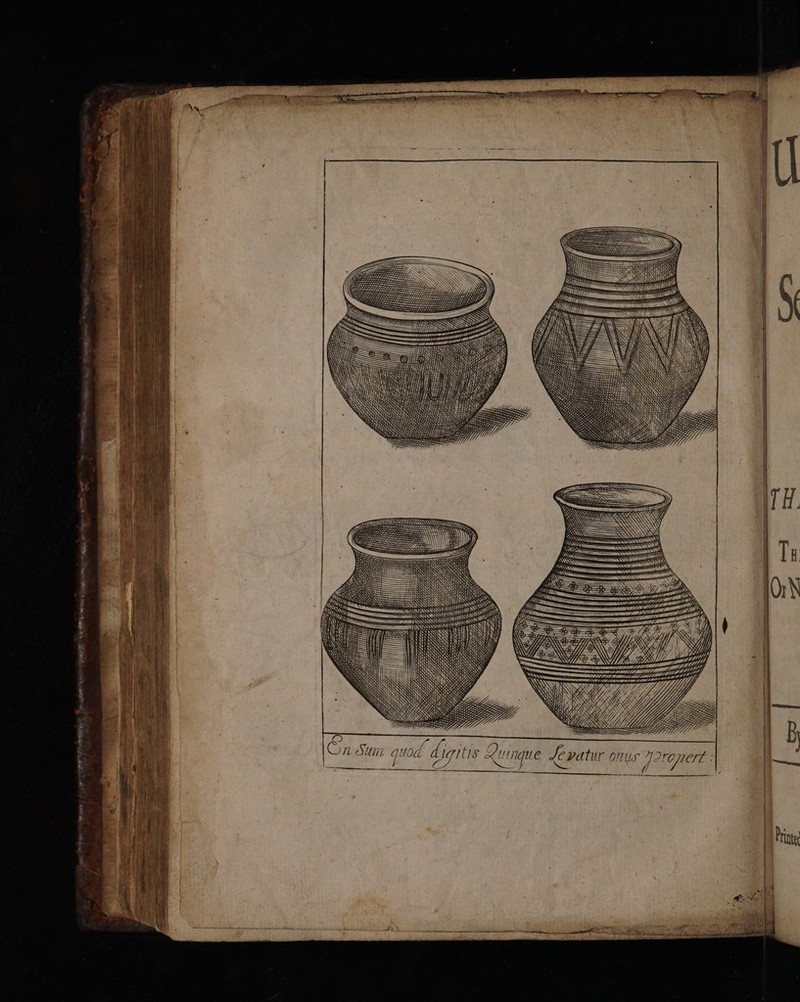 En Sum quod digitis Quinque Levatur onus Propert:
U
Se
TH
TH
Or N
By
Printed